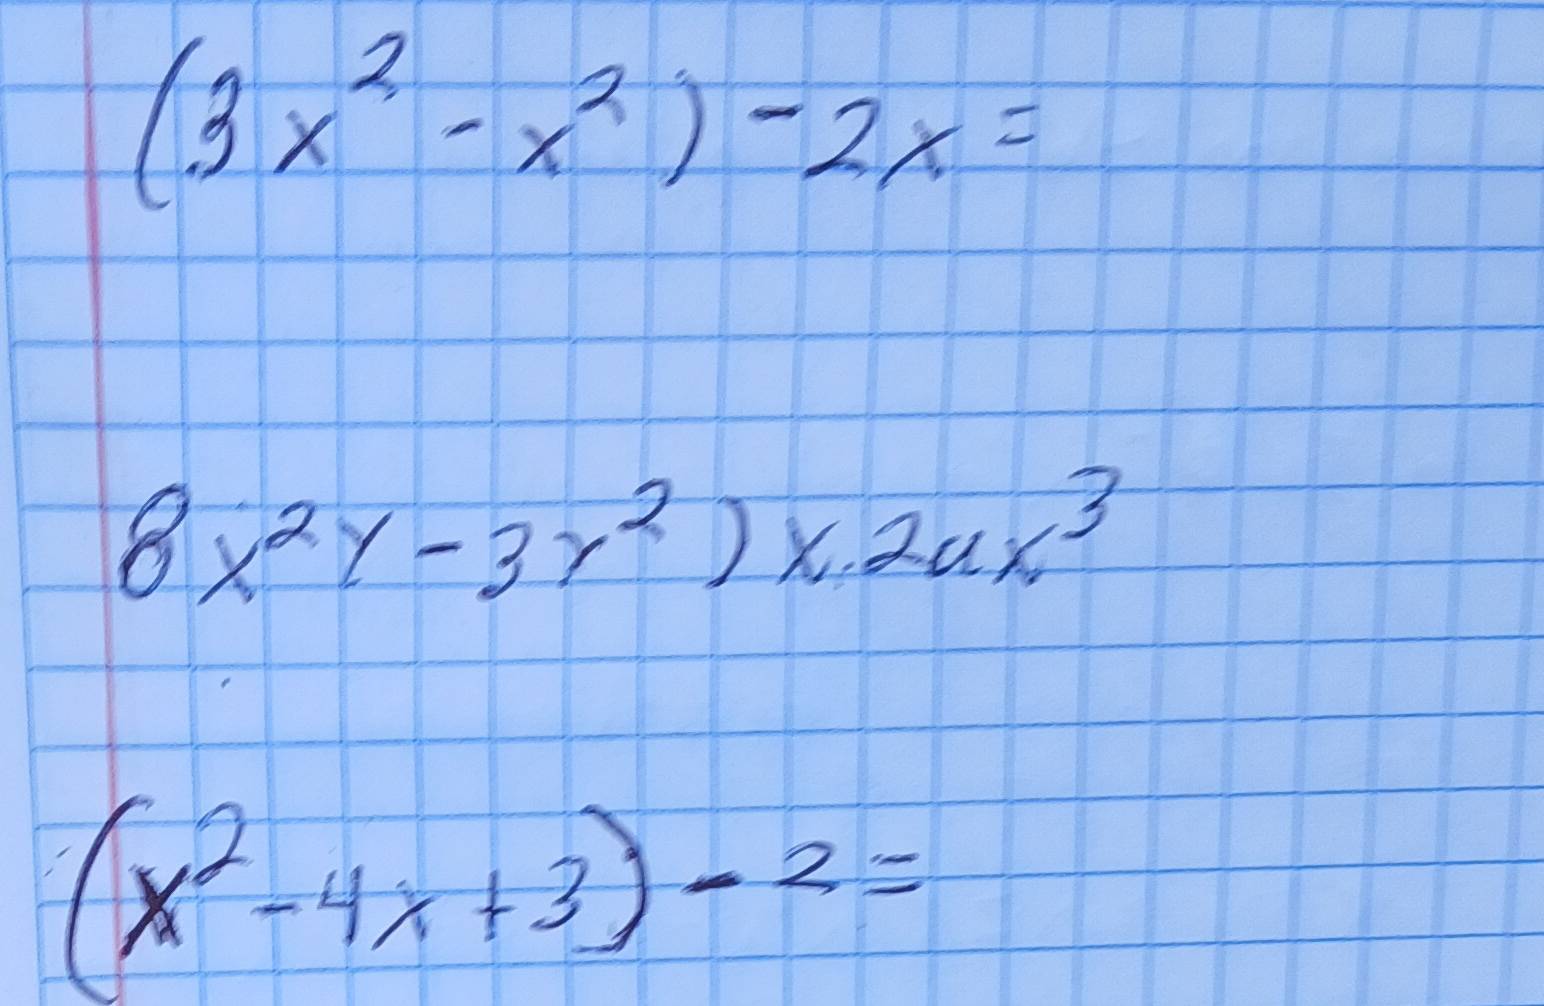 (3x² - x²) - 2x =
8x²y - 3y²) x. 2ax³
(x² - 4x + 3) - 2 =